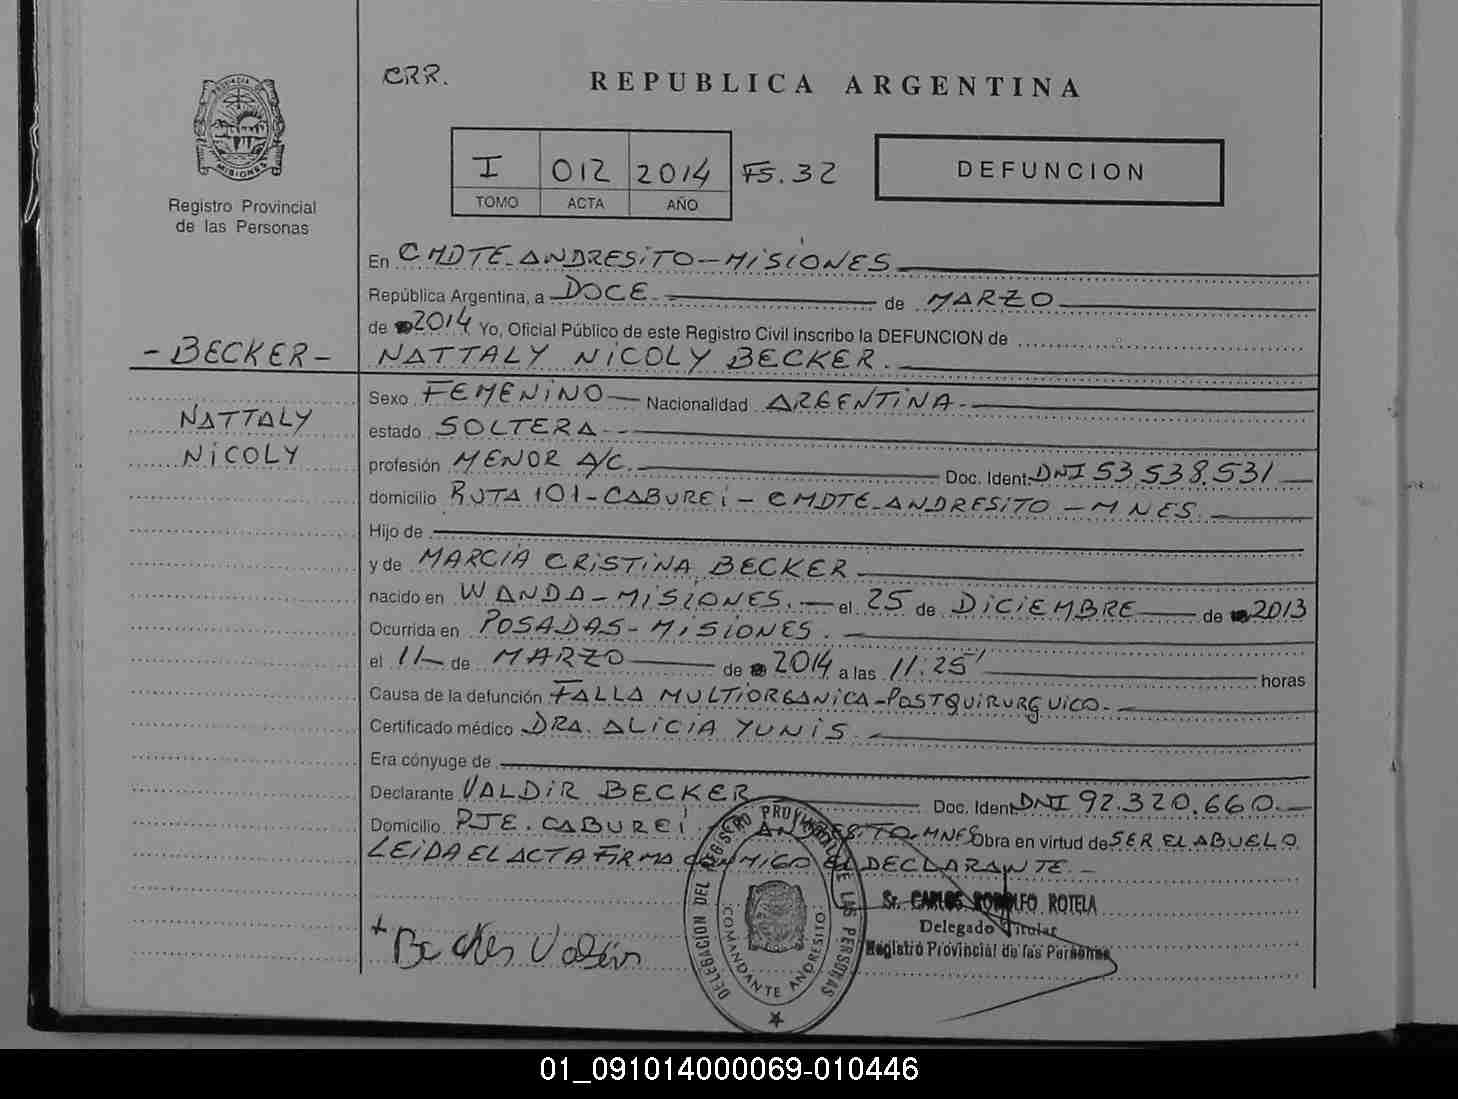 CRR.
REPUBLICA ARGENTINA
PROVINCIA DE
MISIONES
Registro Provincial
de las Personas
I 012 2014 FS. 32
TOMO ACTA AÑO
DEFUNCION
En CMDTE. ANDRESITO - MISIONES
República Argentina, a DOCE de MARZO
de 2014 Yo, Oficial Público de este Registro Civil inscribo la DEFUNCION de
- BECKER - NATTALY NICOLY BECKER.
Sexo FEMENINO Nacionalidad ARGENTINA
NATTALY
estado SOLTERA
NICOLY
profesión MENOR A/C. Doc. Ident. DNI 53.538.531
domicilio RUTA 101 - CABUREI - CMDTE. ANDRESITO - MNES.
Hijo de
y de MARCIA CRISTINA BECKER
nacido en WANDA - MISIONES. el 25 de DICIEMBRE de 2013
Ocurrida en POSADAS - MISIONES.
el 11 de MARZO de 2014 a las 11:25' horas
Causa de la defunción FALLA MULTIORGANICA - POSTQUIRURGUICO.
Certificado médico DRA. ALICIA YUNIS.
Era cónyuge de
Declarante VALDIR BECKER Doc. Ident. DNI 92.320.660
Domicilio PJE. CABUREI - ANDRESITO. MNES Obra en virtud de SER EL ABUELO
LEIDA EL ACTA FIRMA CONMIGO EL DECLARANTE. -
Sr. CARLOS RODOLFO ROTELA
Delegado Titular
Registro Provincial de las Personas
+ Becker Valdir
DELEGACION DEL REGISTRO PROVINCIAL DE LAS PERSONAS
COMANDANTE ANDRESITO
01_091014000069-010446